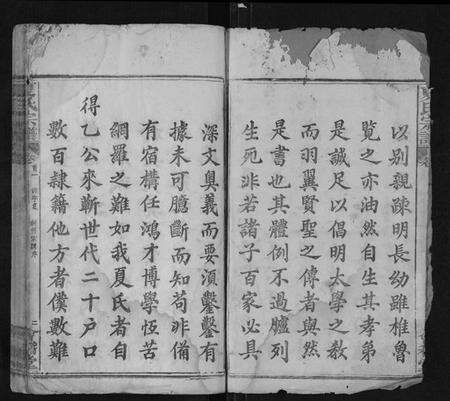 以别親疎明長幼雖椎魯
覧之亦油然自生其孝弟
是誠足以倡明大學之教
而羽翼賢聖之傳者與然
是書也其體例不過臚列
生死非若諸子百家必具
深文奥義而要須鑿鑿有
據未可臆斷而知苟非備
有宿構任鴻才博學恆苦
網羅之難如我夏氏者自
得乙公來蘄世代二十户口
數百隷籍他方者僕數難
夏氏宗譜
氏宗譜